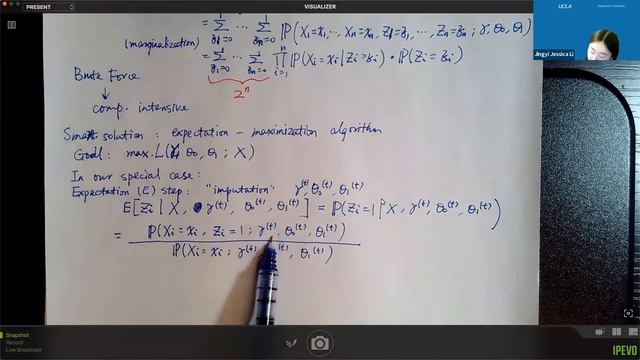 PRESENT
VISUALIZER
UCLA
Jingyi Jessica Li
(marginalization)
= Σ ... Σ P(X₁=x₁, ..., Xn=xn, Z₁=z₁, ..., Zn=zn ; γ, θ₀, θ₁)
= Σ ... Σ ∏ P(Xi=xi | Zi=zi) · P(Zi=zi)
2ⁿ
Brute Force
↓
comp. intensive
Smart solution : expectation - maximization algorithm
Goal: max. L(γ, θ₀, θ₁ ; X)
In our special case:
Expectation (E) step: "imputation" γ⁽ᵗ⁾, θ₀⁽ᵗ⁾, θ₁⁽ᵗ⁾
E[Zi | X, γ⁽ᵗ⁾, θ₀⁽ᵗ⁾, θ₁⁽ᵗ⁾] = P(Zi=1 | X, γ⁽ᵗ⁾, θ₀⁽ᵗ⁾, θ₁⁽ᵗ⁾)
= P(Xi=xi, Zi=1 ; γ⁽ᵗ⁾, θ₀⁽ᵗ⁾, θ₁⁽ᵗ⁾)
P(Xi=xi ; γ⁽ᵗ⁾ ⁽ᵗ⁾, θ₁⁽ᵗ⁾)
Snapshot
Record
Live Broadcast
IPEVO